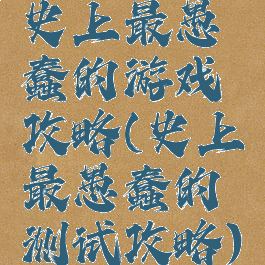 史上最愚
蠢的游戏
攻略(史上
最愚蠢的
测试攻略)